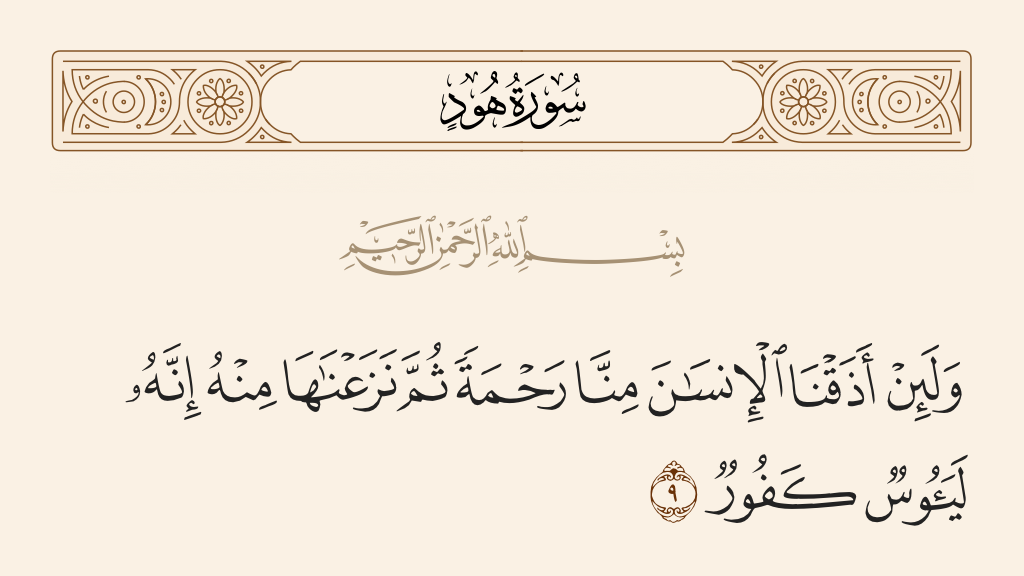 سُورَةُ هُودٍ
بِسْمِ ٱللَّهِ ٱلرَّحْمَٰنِ ٱلرَّحِيمِ
وَلَئِنْ أَذَقْنَا ٱلْإِنسَـٰنَ مِنَّا رَحْمَةً ثُمَّ نَزَعْنَـٰهَا مِنْهُ إِنَّهُۥ
لَيَـُٔوسٌ كَفُورٌ ٩